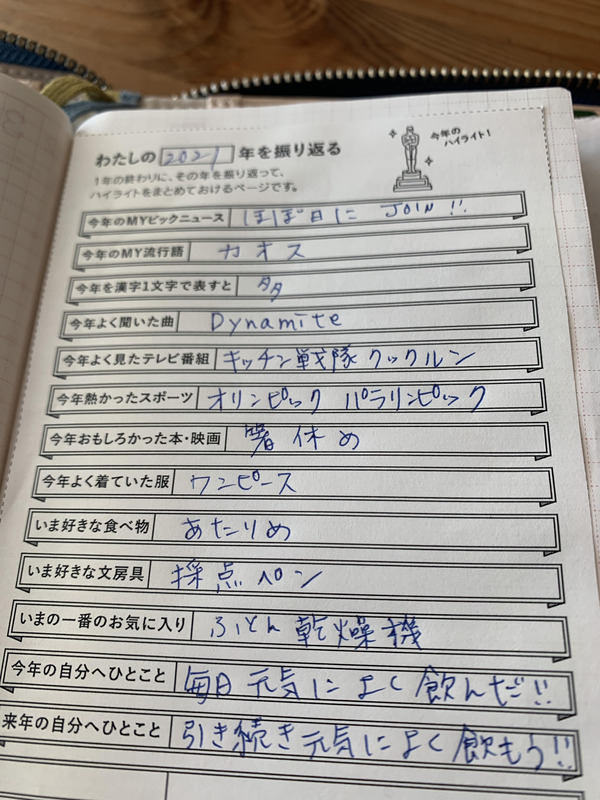 今年の
ハイライト!
わたしの 2021 年を振り返る
1年の終わりに、その年を振り返って、
ハイライトをまとめておけるページです。
今年のMYビックニュース ほぼ日に JOIN!!
今年のMY流行語 カオス
今年を漢字1文字で表すと 多
今年よく聞いた曲 Dynamite
今年よく見たテレビ番組 キッチン戦隊クックルン
今年熱かったスポーツ オリンピック パラリンピック
今年おもしろかった本・映画 箸休め
今年よく着ていた服 ワンピース
いま好きな食べ物 あたりめ
いま好きな文房具 採点ペン
いまの一番のお気に入り ふとん乾燥機
今年の自分へひとこと 毎日元気によく飲んだ!!
来年の自分へひとこと 引き続き元気によく飲もう!!